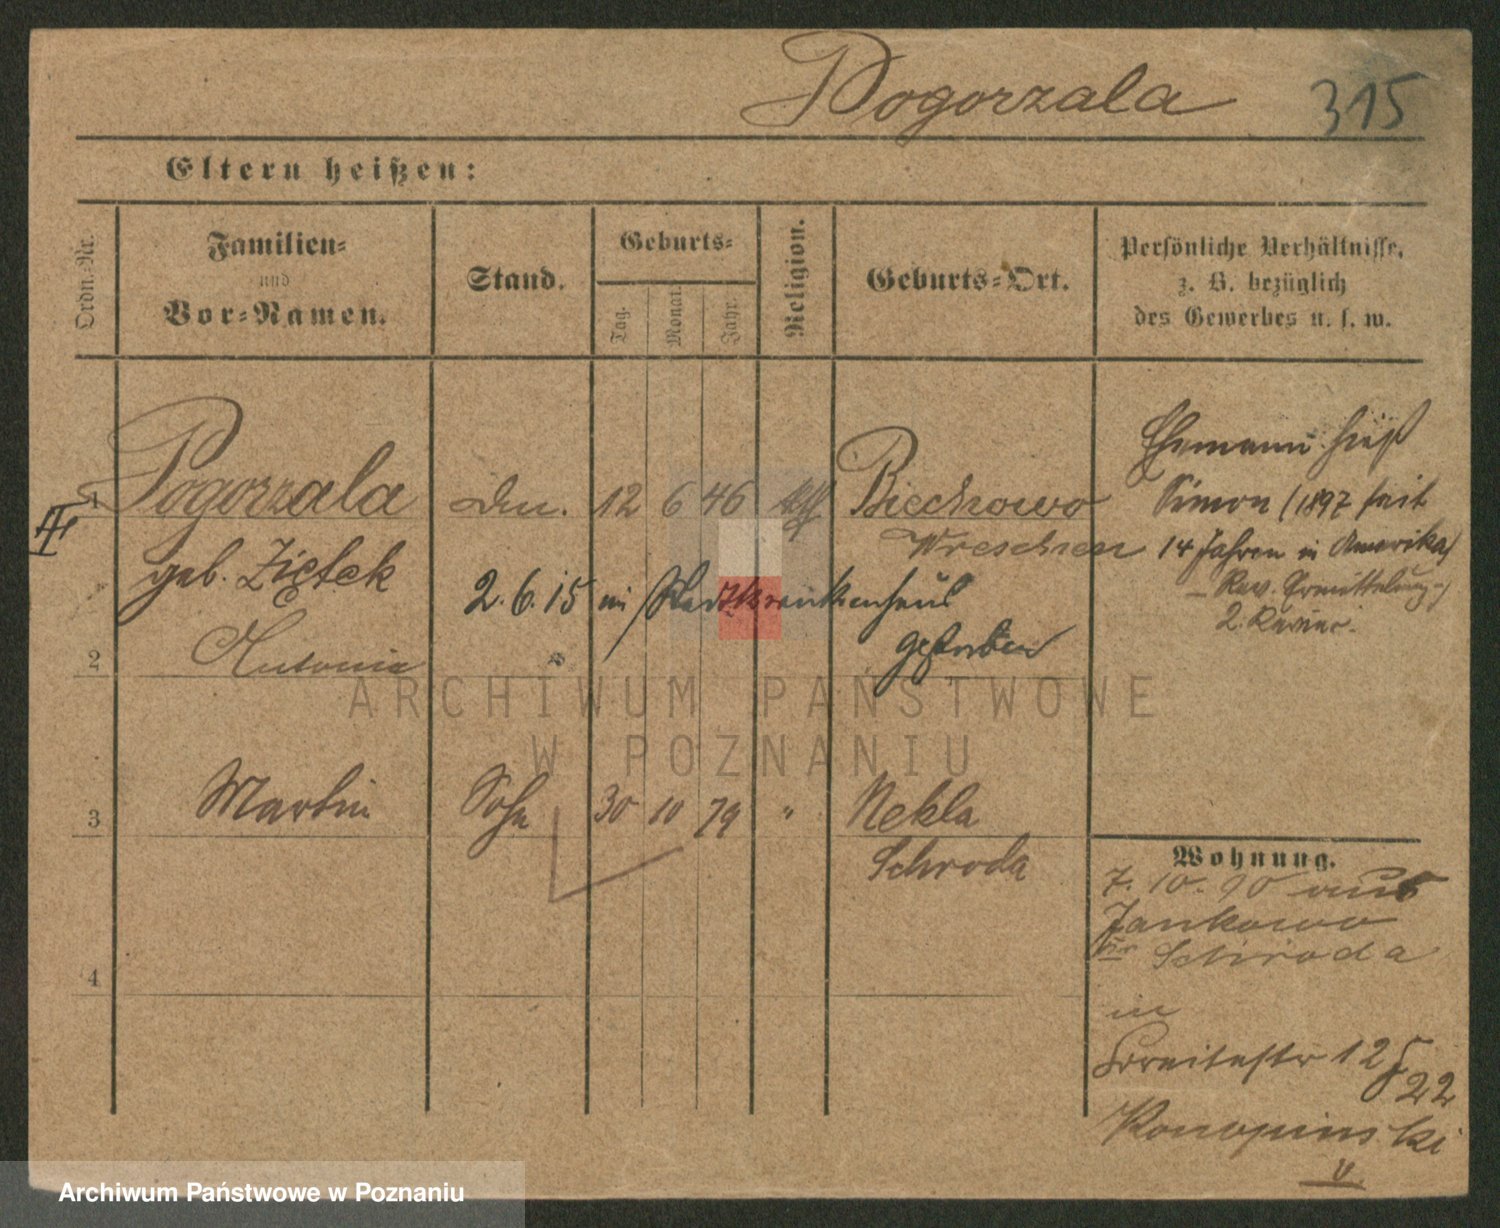 Pogorzala 315
Eltern heißen:
Ordn.=Nr.
Familien=
und
Vor=Namen.
Stand.
Geburts=
Tag.
Monat.
Jahr.
Religion.
Geburts=Ort.
Persönliche Verhältnisse,
z. B. bezüglich
des Gewerbes u. s. w.
1 Pogorzala 12 6 46 kath Biechowo
Wreschen
geb. Ziętek
2.6.15 im Stadtkrankenhaus
gestorben
2 Antonie
3 Martin Sohn 30 10 79 " Nekla
Schroda
4
Ehemann hieß
Simon (1897 seit
14 Jahren in Amerika)
- Rev. Ermittelung -
2. Revier.
Wohnung.
7. 10. 90 aus
Jankowo
Kr. Schroda
in
Breitestr 12
22
Konopinski
ARCHIWUM PAŃSTWOWE
W POZNANIU
Archiwum Państwowe w Poznaniu